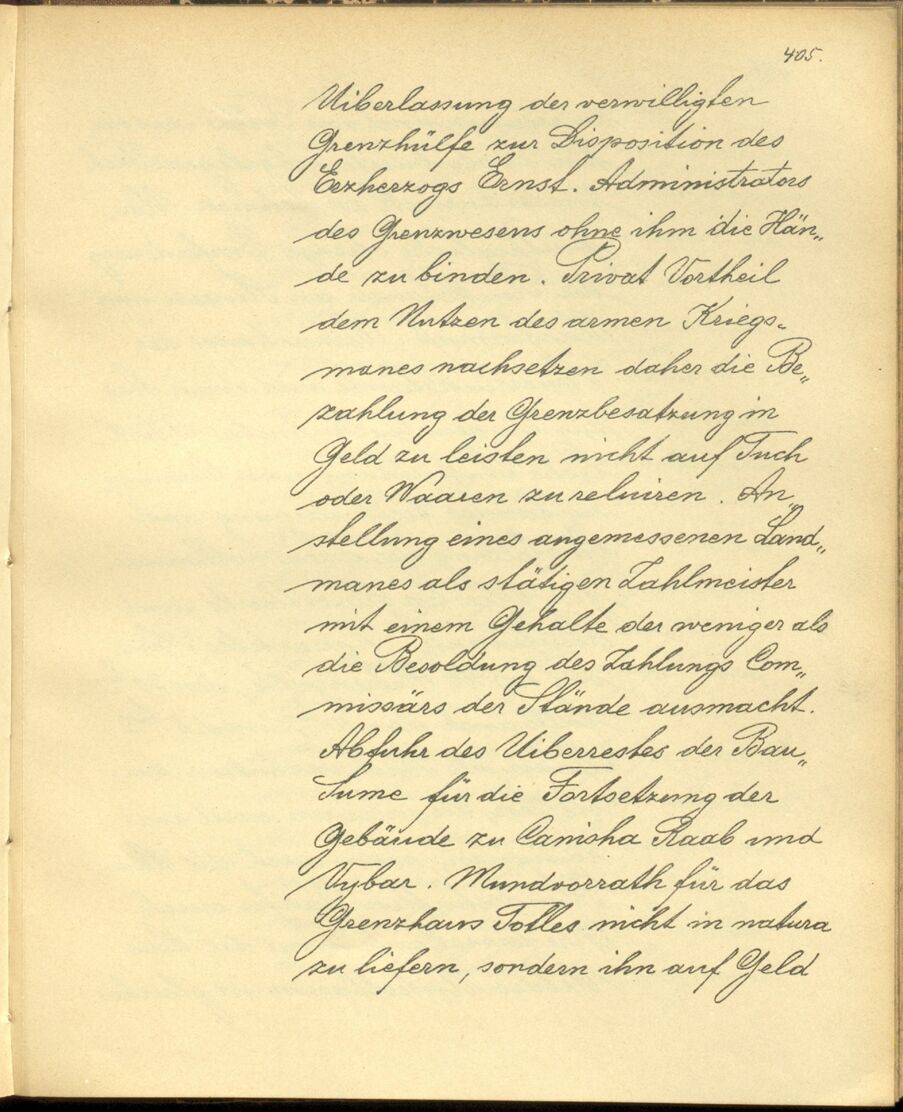 405.
Uiberlassung der verwilligten
Grenzhülfe zur Disposition des
Erzherzogs Ernst. Administrators
des Grenzwesens ohne ihm die Hän„
de zu binden. Privat Vortheil
dem Nutzen des armen Kriegs„
manes nachsetzen daher die Be„
zahlung der Grenzbesatzung in
Geld zu leisten nicht auf Tuch
oder Waaren zu reluiren. An„
stellung eines angemessenen Land„
manes als stätigen Zahlmeister
mit einem Gehalte der weniger als
die Besoldung des Zahlungs Com„
missärs der Stände ausmacht.
Abfuhr des Uiberrestes der Bau„
Sume für die Fortsetzung der
Gebäude zu Canisha Raab und
Vybar. Mundvorrath für das
Grenzhaus Totles nicht in natura
zu liefern, sondern ihn auf Geld